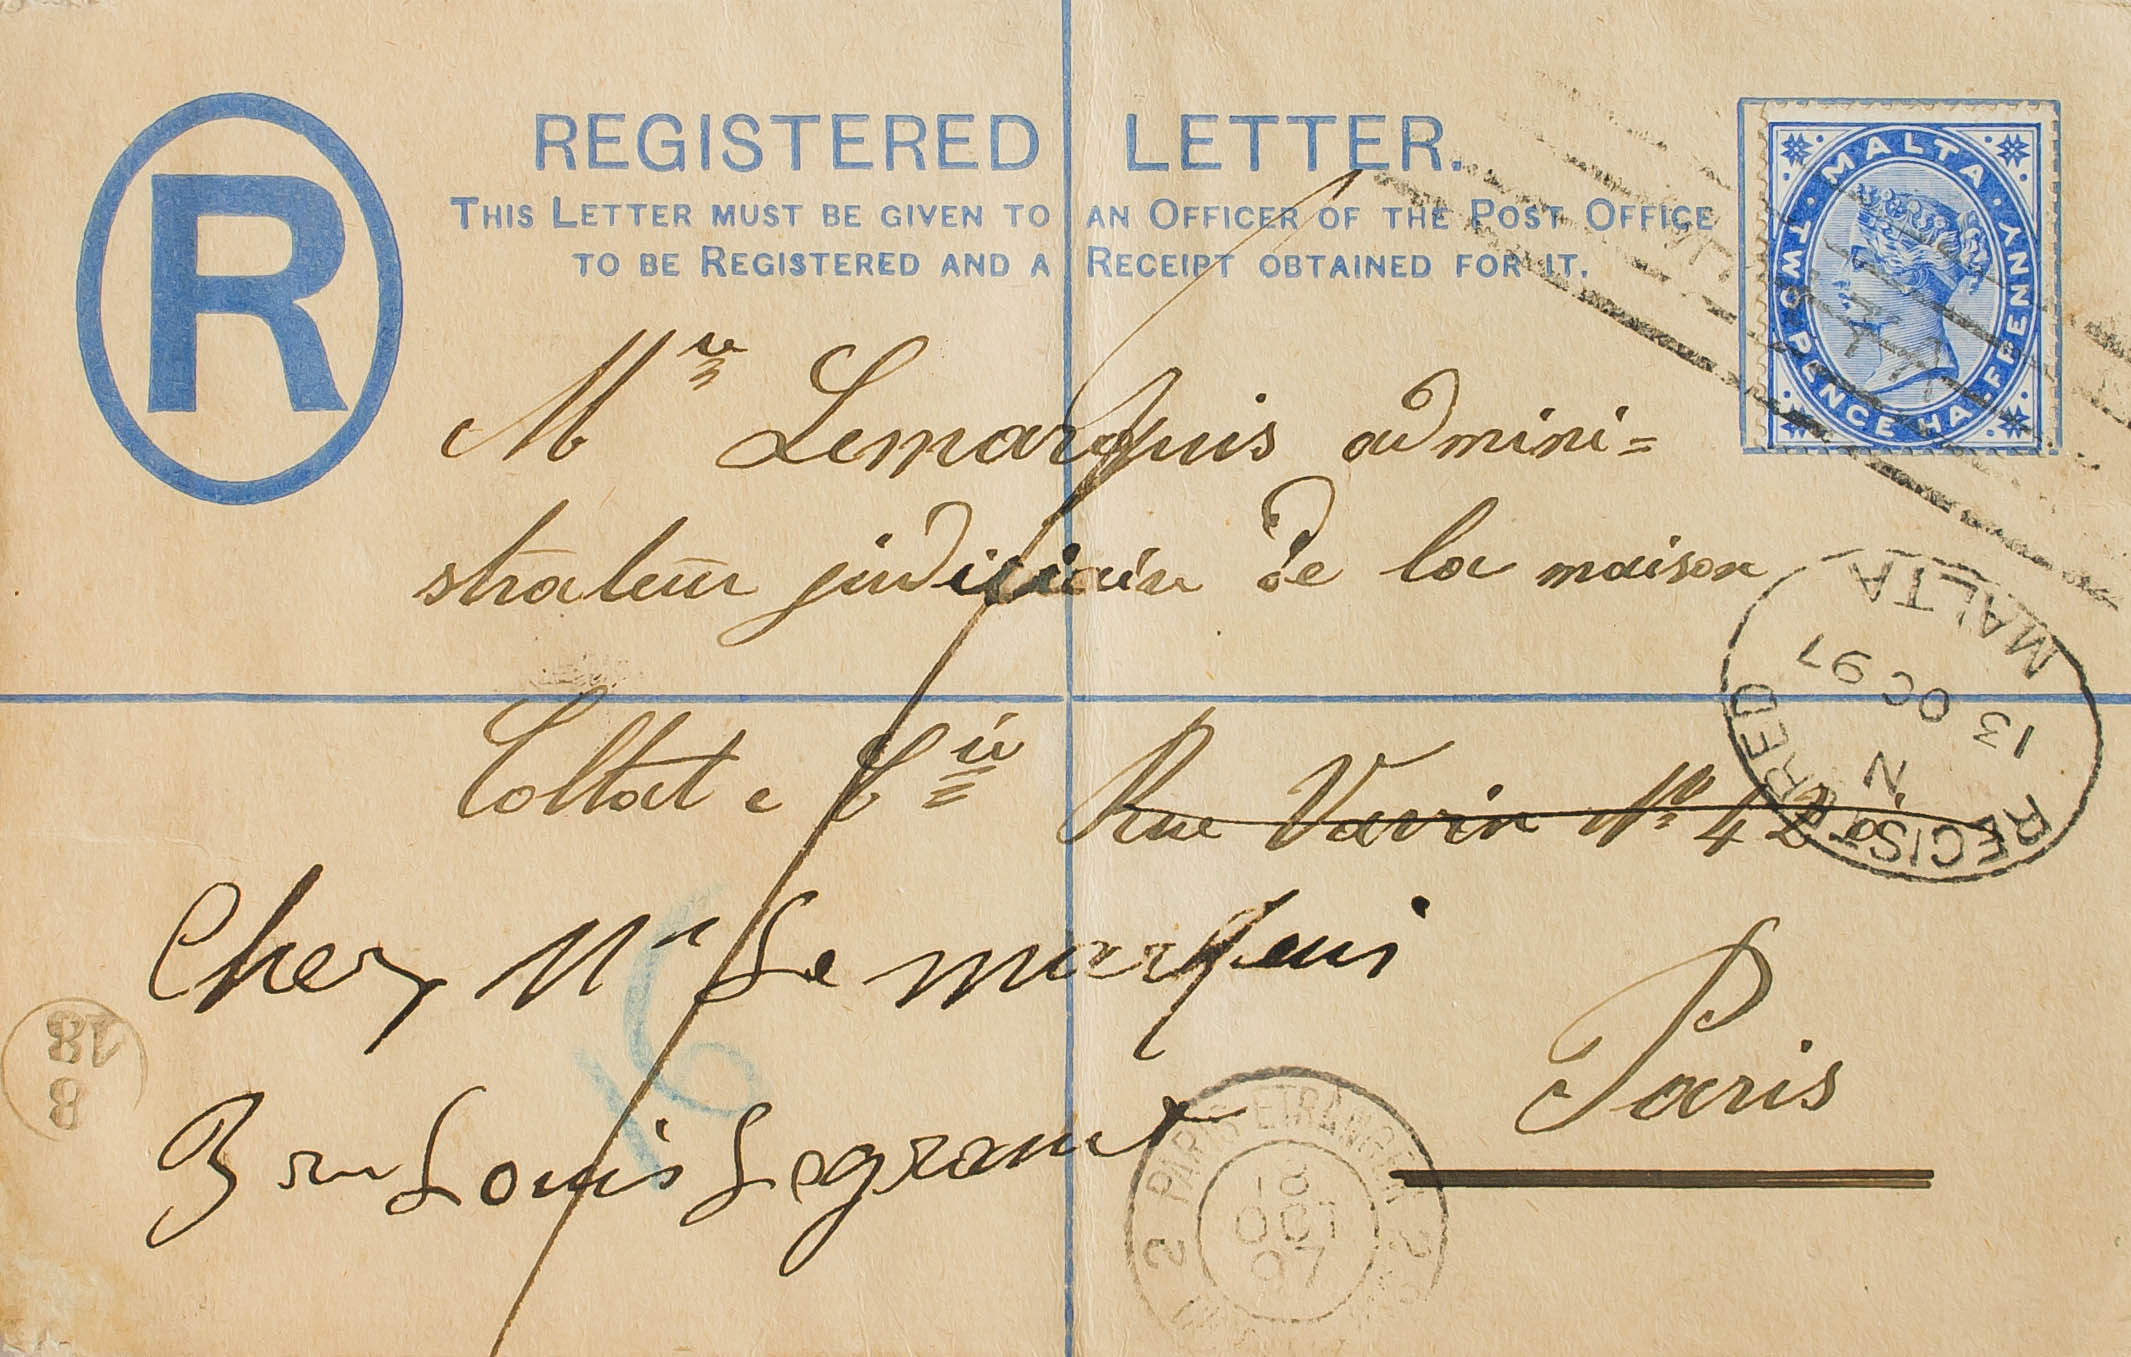 REGISTERED LETTER.
THIS LETTER MUST BE GIVEN TO AN OFFICER OF THE POST OFFICE
TO BE REGISTERED AND A RECEIPT OBTAINED FOR IT.
R
MALTA
TWOPENCE HALFPENNY
Mr Lemarquis admini=
strateur judiciaire de la maison
Coltat e Cie Rue Vavin No 42
Chez Mr Lemarquis
3 rue Louis Legrand
Paris
REGISTERED
MALTA
13 OC 97
N
2 PARIS ETRANGER 2
18
OCT
97
18
8